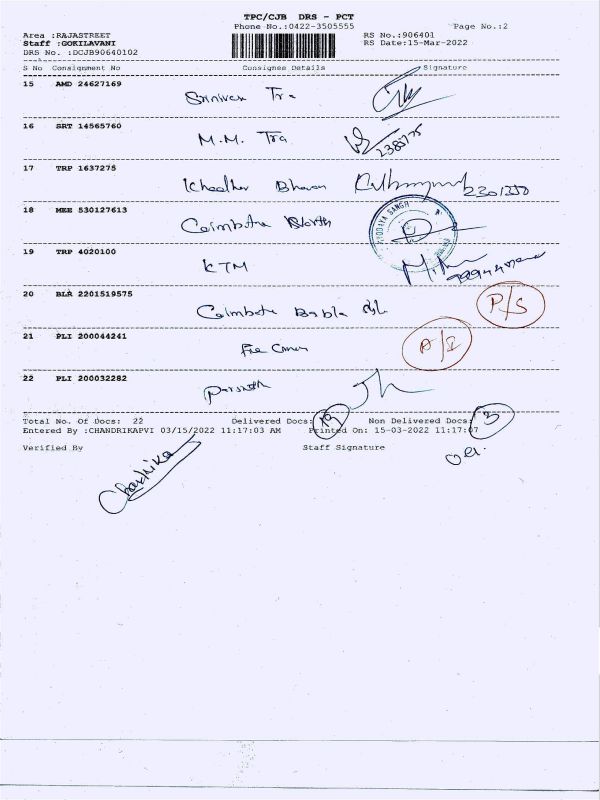 TPC/CJB DRS - PCT
Phone No.:0422-3505555 Page No.:2
Area :RAJASTREET RS No.:906401
Staff :GOKILAVANI RS Date:15-Mar-2022
DRS No. :DCJB90640102
S No Consignment No Consignee Details Signature
15 AMD 24627169
Srinivas Tra
16 SRT 14565760
M.M. Tra
17 TRP 1637275
Bhavan
18 MEE 530127613
Coimbatore North
19 TRP 4020100
KTM
20 BLR 2201519575
P/S
21 PLI 200044241
A/I
22 PLI 200032282
Total No. Of Docs: 22 Delivered Docs: 19 Non Delivered Docs: 3
Entered By :CHANDRIKAPVI 03/15/2022 11:17:03 AM Printed On: 15-03-2022 11:17:07
Verified By Staff Signature
Chandrika